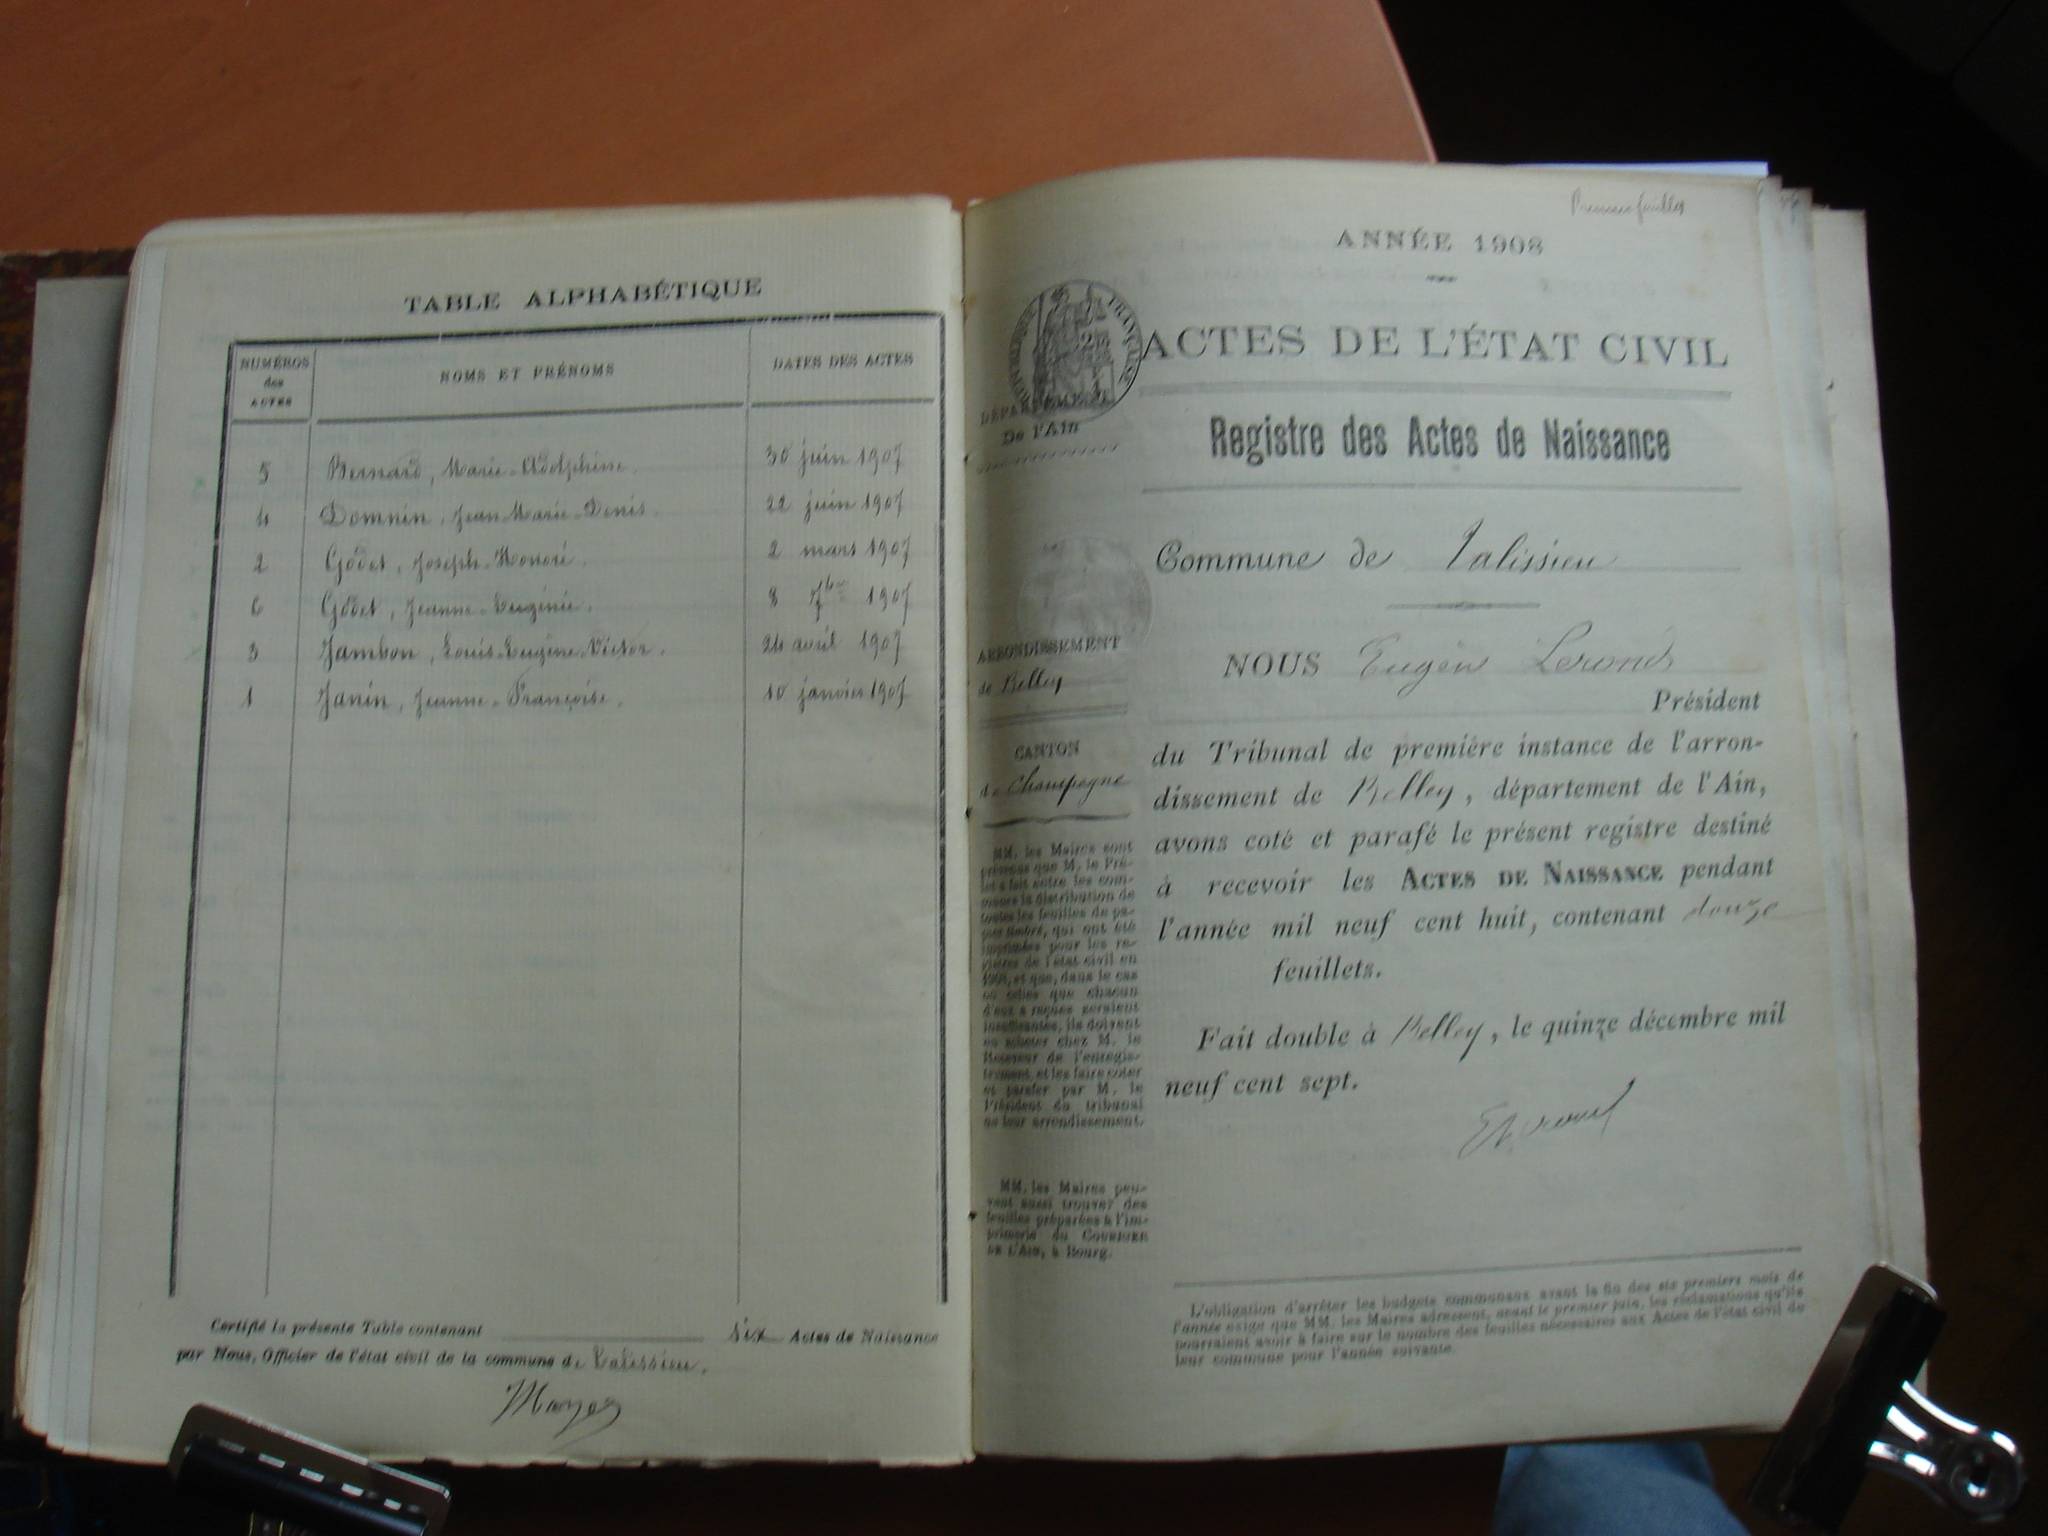 TABLE ALPHABÉTIQUE
NUMÉROS des ACTES
NOMS ET PRÉNOMS
DATES DES ACTES
5 Bernard, Marie-Adolphine. 30 juin 1907
4 Domnin, Jean-Marie-Denis. 22 juin 1907
2 Godet, Joseph-Honoré. 2 mars 1907
6 Godet, Jeanne-Eugénie. 8 7bre 1907
3 Jambon, Louis-Eugène-Victor. 24 avril 1907
1 Janin, Jeanne-Françoise. 10 janvier 1907
Certifié la présente Table contenant six Actes de Naissance
par Nous, Officier de l'état civil de la commune de Talissieu.
ANNÉE 1908
ACTES DE L'ÉTAT CIVIL
DÉPARTEMENT
De l'Ain
Registre des Actes de Naissance
Commune de Talissieu
ARRONDISSEMENT
de Belley
CANTON
de Champagne
MM. les Maires sont
prévenus que M. le Pré-
fet a fait entre les com-
munes la distribution de
toutes les feuilles de pa-
pier timbré, qui ont été
imprimées pour les re-
gistres de l'état civil en
1908, et que, dans le cas
où celles que chacun
d'eux a reçues seraient
insuffisantes, ils doivent
en acheter chez M. le
Receveur de l'enregis-
trement, et les faire coter
et parafer par M. le
Président du tribunal
de leur arrondissement.
MM. les Maires peu-
vent aussi trouver des
feuilles préparées à l'im-
primerie du COURRIER
DE L'AIN, à Bourg.
NOUS Eugène
Président
du Tribunal de première instance de l'arron-
dissement de Belley, département de l'Ain,
avons coté et parafé le présent registre destiné
à recevoir les ACTES DE NAISSANCE pendant
l'année mil neuf cent huit, contenant douze
feuillets.
Fait double à Belley, le quinze décembre mil
neuf cent sept.
L'obligation d'arrêter les budgets communaux avant la fin des six premiers mois de
l'année exige que MM. les Maires adressent, avant le premier juin, les réclamations qu'ils
pourraient avoir à faire sur le nombre des feuilles nécessaires aux Actes de l'état civil de
leur commune pour l'année suivante.